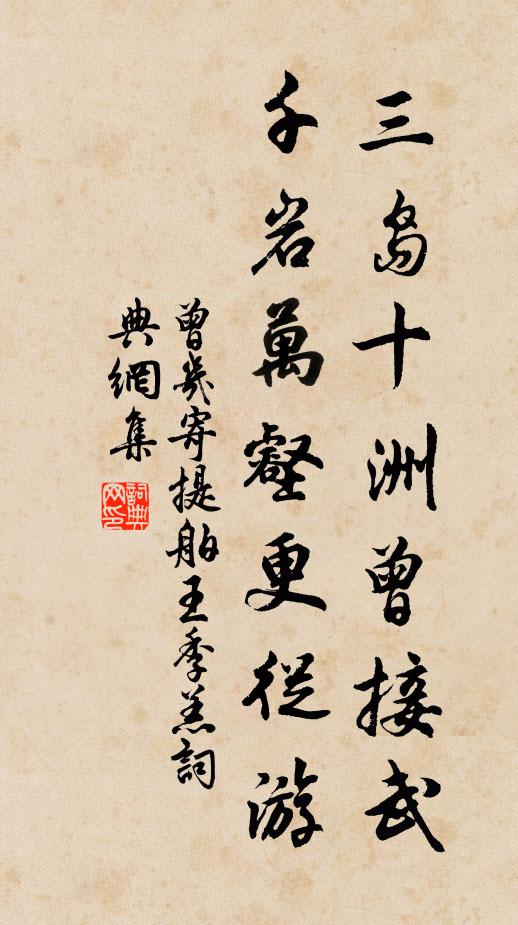 三島十洲曾接武
千岩萬壑更從游
曾幾寄提舶王季羔詞
典網集
詞典網印